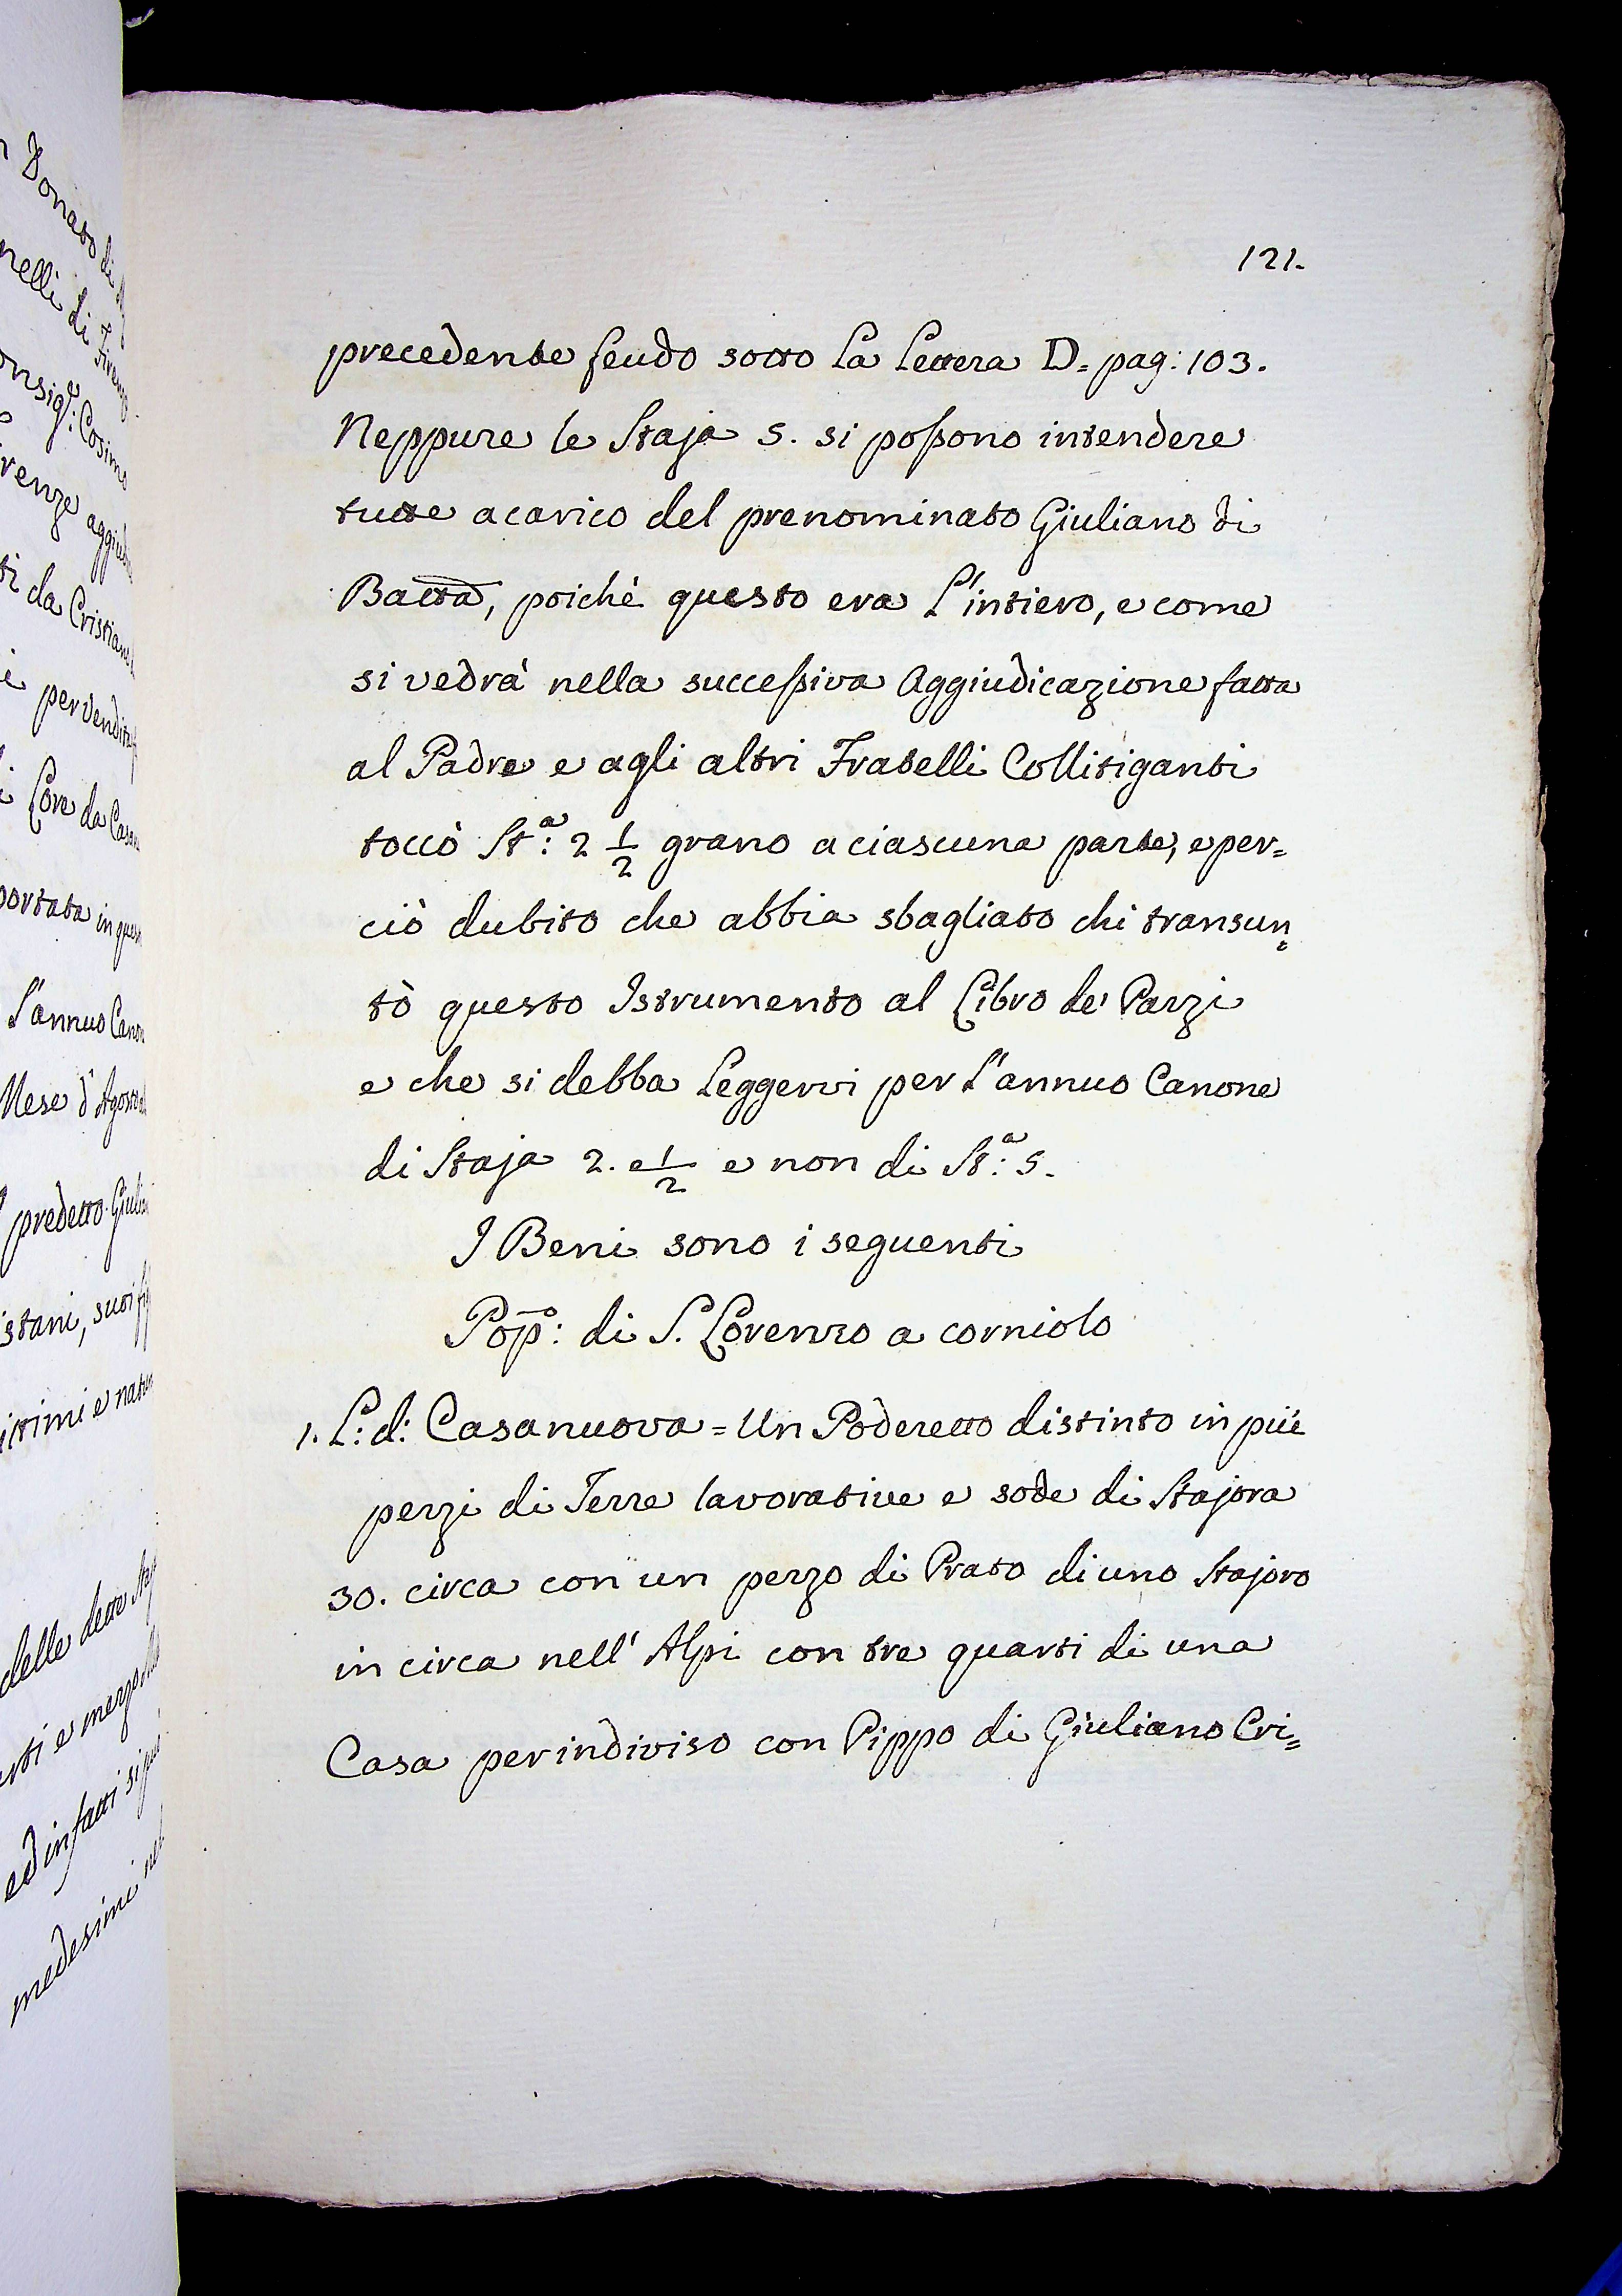 Donato di
nelli di Firenze
onsigl: Cosimo
renze aggiud
ti da Cristiano
per vendita
Lore da Casa
portata in ques
l'annuo Canon
Mese d'Agosto
predetto Giulia
stani, suoi fi
ittimi e natur
delle dette Staj
rti e mezzo
ed infatti si
medesimi nel
121.
precedente feudo sotto la Lettera D. pag: 103.
Neppure le Staja 5. si possono intendere
tutte a carico del prenominato Giuliano di
Batta, poichè questo era l'intiero, e come
si vedrà nella successiva Aggiudicazione fatta
al Padre e agli altri Fratelli Collitiganti
toccò St.ª: 2 1/2 grano a ciascuna parte, e per=
ciò dubito che abbia sbagliato chi transun=
tò questo Istrumento al Libro de' Pazzi
e che si debba leggervi per l'annuo Canone
di Staja 2. e 1/2 e non di St.ª: 5.
I Beni sono i seguenti
Pop.º: di S. Lorenzo a corniolo
1. L: d: Casanuova = Un Poderetto distinto in più
pezzi di Terre lavorative e sode di Stajora
30. circa con un pezzo di Prato di uno Stajoro
in circa nell' Alpi con tre quarti di una
Casa per indiviso con Pippo di Giuliano Cri=